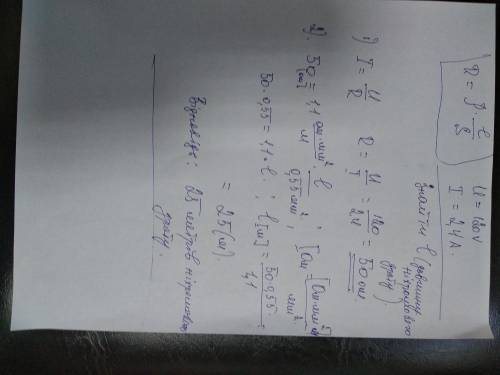 R = ρ · l/S
U = 120V
I = 2,4 A.
Знайти l (довжину
ніхромового
дроту)
1) I = U/R   R = U/I = 120/2,4 = 50 ом
2) 50 [ом] = 1,1 ом·мм²/м · l/0,55 мм² ; [Ом = Ом·мм²·м/мм²]
50 · 0,55 = 1,1 · l ; l [м] = 50·0,55/1,1 =
= 25 (м).
Відповідь: 25 метрів ніхромового
дроту.